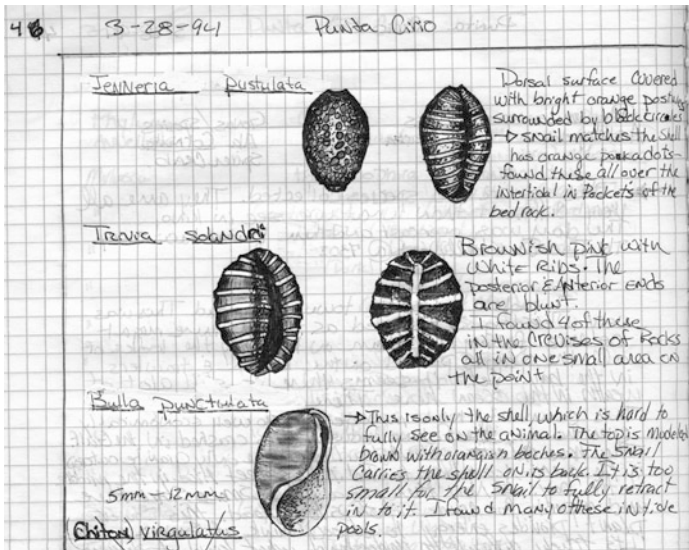 46 3-28-94 Punta Cirio
Jenneria pustulata
Dorsal surface covered
with bright orange postules
surrounded by black circles
→ snail matches the shell
has orange polkadots-
found these all over the
intertidal in Pockets of the
bedrock.
Trivia solandri
Brownish pink with
white Ribs. The
posterior & Anterior ends
are blunt.
I found 4 of these
in the Crevises of Rocks
all in one small area on
the point
Bulla punctulata
→ This is only the shell, which is hard to
fully see on the animal. The top is
brown with orangish The Snail
Carries the shell on its back. It is too
small for the snail to fully retract
in to it. I found many of these in tide
pools.
5mm-12mm
Chiton virgulatus